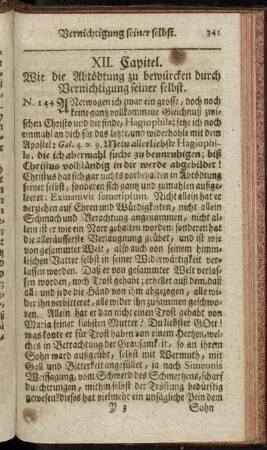 Vernichtigung seiner selbst. 341
XII. Capitel.
Wie die Abtödtung zu bewürcken durch
Vernichtigung seiner selbst.
N. 144 Nerwogen ich zwar ein grosse, doch noch
keine gantz vollkommene Gleichnuß zwi-
schen Christo und dir finde, Hagiophila; setze ich noch
einmahl an dich für das letzte, und widerhohle mit dem
Apostel: 2 Gal. 4. v. 9. Mein allerliebste Hagiophi-
la, die ich abermahl suche zu beunruhigen; biß
Christus vollständig in dir werde abgebildet!
Christus hat sich gar nichts vorbehalten in Abtödtung
seiner selbst, sonderen sich gantz und zumahlen außge-
leeret: Exinanivit semetipsum. Nicht allein hat er
verziehen auf Ehren und Würdigkeiten, nicht allein
Schmach und Verachtung angenommen, nicht al-
lein ist er wie ein Narr gehalten worden: sonderen hat
die alleräusserste Verlaugnung geübet, und ist wie
von gesammter Welt, also auch von seinem himm-
lischen Vatter selbst in seiner Widerwärtigkeit ver-
lassen worden. Daß er von gesammter Welt verlas-
sen worden, noch Trost gehabt; erhellet auß dem, daß
alle und jede die Händ von ihm abgezogen, alle wi-
der ihn verbitteret, alle wider ihn zusammen geschwo-
ren. Allein hat er dan nicht einen Trost gehabt von
Maria seiner liebsten Mutter? Du liebster GOtt!
was konte er für Trost haben von einem Hertzen, wel-
ches in Betrachtung der Grausamkeit, so an ihrem
Sohn ward außgeübt, selbst mit Wermuth, mit
Gall und Bitterkeit angefüllet, ja nach Simeonis
Weissagung, vom Schwerd des Schmertzens, scharf
durchtrungen, mithin selbst der Tröstung bedürftig
gewesen? dieses hat vielmehr ein unsägliche Pein dem
Y 3 Sohn